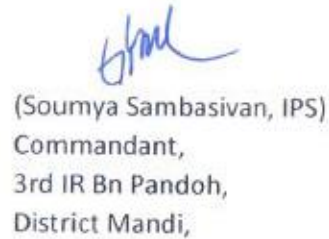 (Soumya Sambasivan, IPS)
Commandant,
3rd IR Bn Pandoh,
District Mandi,